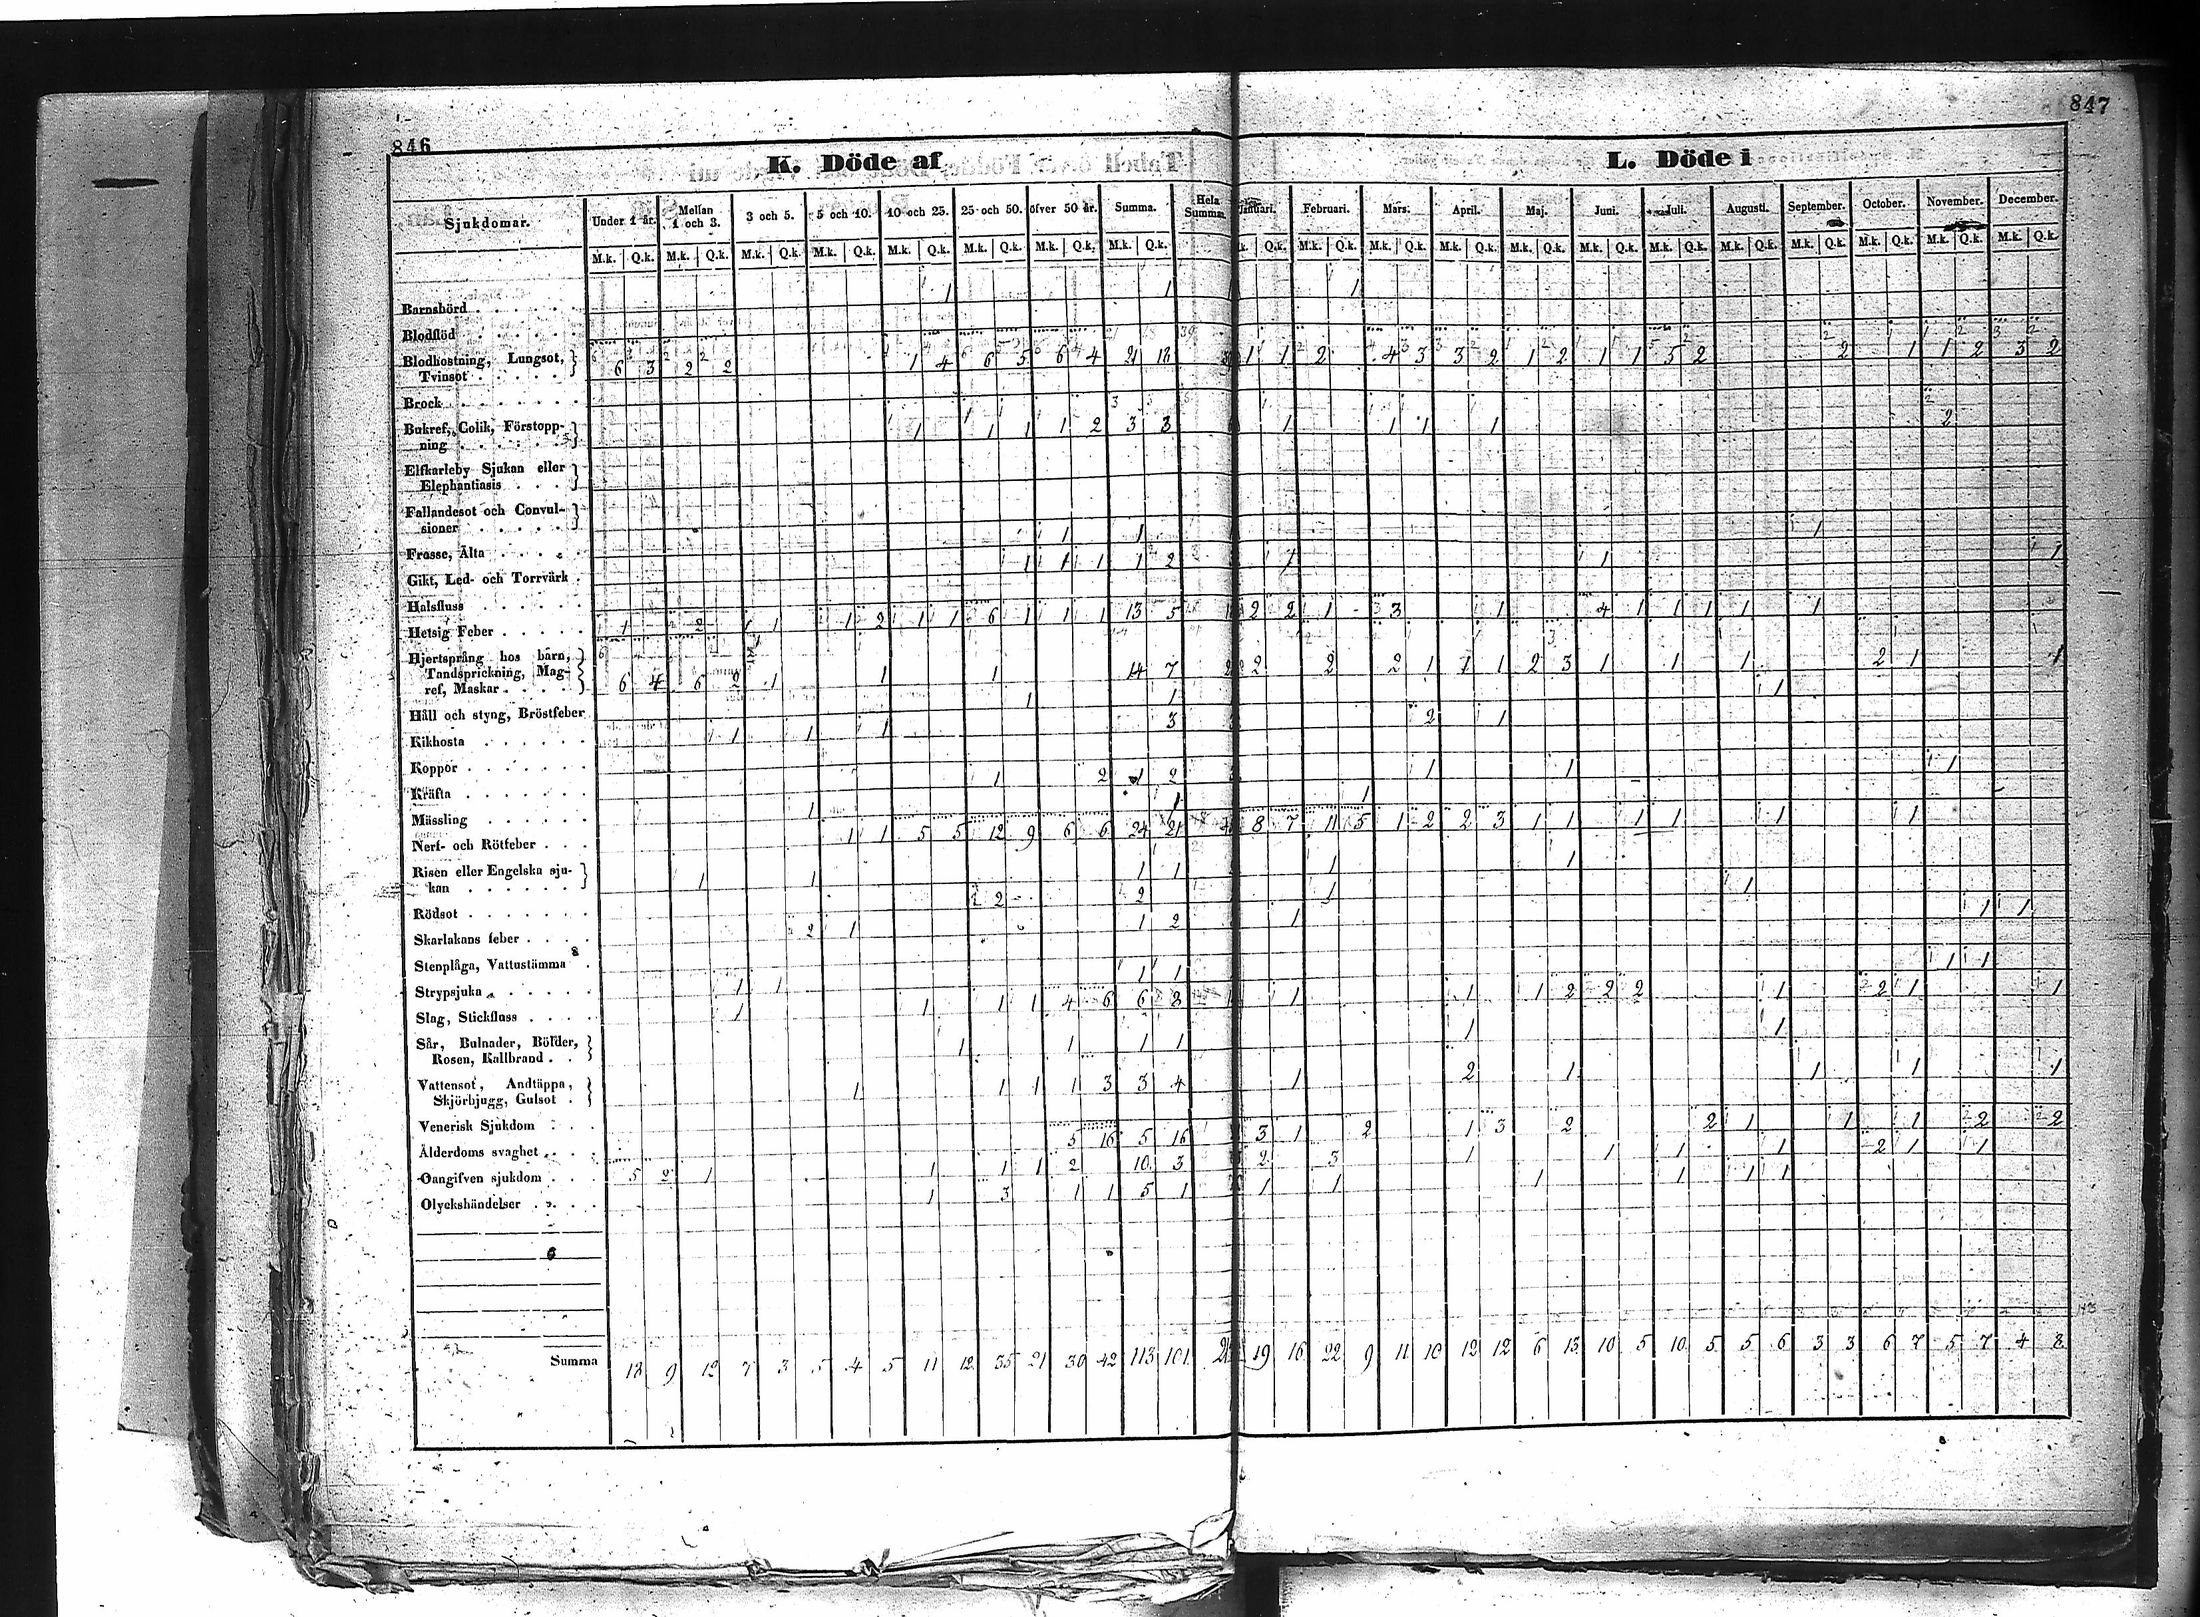 846
847
K. Döde af
L. Döde i
Sjukdomar. Under 1 år. Mellan 1 och 3. 3 och 5. 5 och 10. 10 och 25. 25 och 50. öfver 50 år. Summa. Hela Summan. Januari. Februari. Mars. April. Maj. Juni. Juli. Augusti. September. October. November. December.
M.k. Q.k. M.k. Q.k. M.k. Q.k. M.k. Q.k. M.k. Q.k. M.k. Q.k. M.k. Q.k. M.k. Q.k. Q.k. M.k. Q.k. M.k. Q.k. M.k. Q.k. M.k. Q.k. M.k. Q.k. M.k. Q.k. M.k. Q.k. M.k. Q.k. M.k. Q.k. M.k. Q.k. M.k. Q.k.
Barnsbörd 1 1 1
Blodflöd
Blodhostning, Lungsot,
Tvinsot 6 3 2 2 1 4 6 5 6 4 21 18 1 1 2 4 3 3 2 1 2 1 1 5 2 2 1 1 2 3 2
Brock
Bukref, Colik, Förstopp-
ning 1 1 1 1 2 3 3 1 1 1 1 2
Elfkarleby Sjukan eller
Elephantiasis
Fallandesot och Convul-
sioner
Frosse, Älta 1 1 1
Gikt, Led- och Torrvärk 1 1 1 1 2 1 1 1
Halsfluss
Hetsig Feber 1 2 1 1 1 2 1 1 6 1 1 1 13 5 2 2 1 3 1 4 1 1 1 1 1
Hjertsprång hos barn,
Tandsprickning, Mag-
ref, Maskar 6 4 6 2 1 1 1 14 7 2 2 2 1 1 1 2 3 1 1 1 2 1 1
Håll och styng, Bröstfeber 1 1 1
Kikhosta 1 1 1 3 2 1
Koppor
Kräfta 1 2 1 2 1 1 1
Mässling 1 1 1
Nerf- och Rötfeber 1 1 5 5 12 9 6 6 24 21 8 7 11 5 1 2 2 3 1 1 1 1 1 1
Risen eller Engelska sju-
kan 1 1 1 1 1 1
Rödsot 2 2 1 1
Skarlakans feber 2 1 1 2 1 1 1
Stenplåga, Vattustämma
Strypsjuka 1 1 1 1 1 1
Slag, Stickfluss 1 1 1 1 4 6 6 8 1 1 1 2 2 2 1 2 1 1
Sår, Bulnader, Bölder,
Rosen, Kallbrand 1 1 1 1 1 1
Vattensot, Andtäppa,
Skjörbjugg, Gulsot 1 1 1 1 3 3 4 1 2 1 1 1 1
Venerisk Sjukdom
Ålderdoms svaghet 5 16 5 16 3 1 2 1 3 2 2 1 1 1 2 2
Oangifven sjukdom 5 2 1 1 1 1 2 10 3 2 3 1 1 1 1 2 1 1
Olyckshändelser 1 3 1 1 5 1 1 1 1 1 1 1
Summa 18 9 12 7 3 5 4 5 11 12 35 21 30 42 113 101 19 16 22 9 11 10 12 12 6 13 10 5 10 5 5 6 3 3 6 7 5 7 4 8